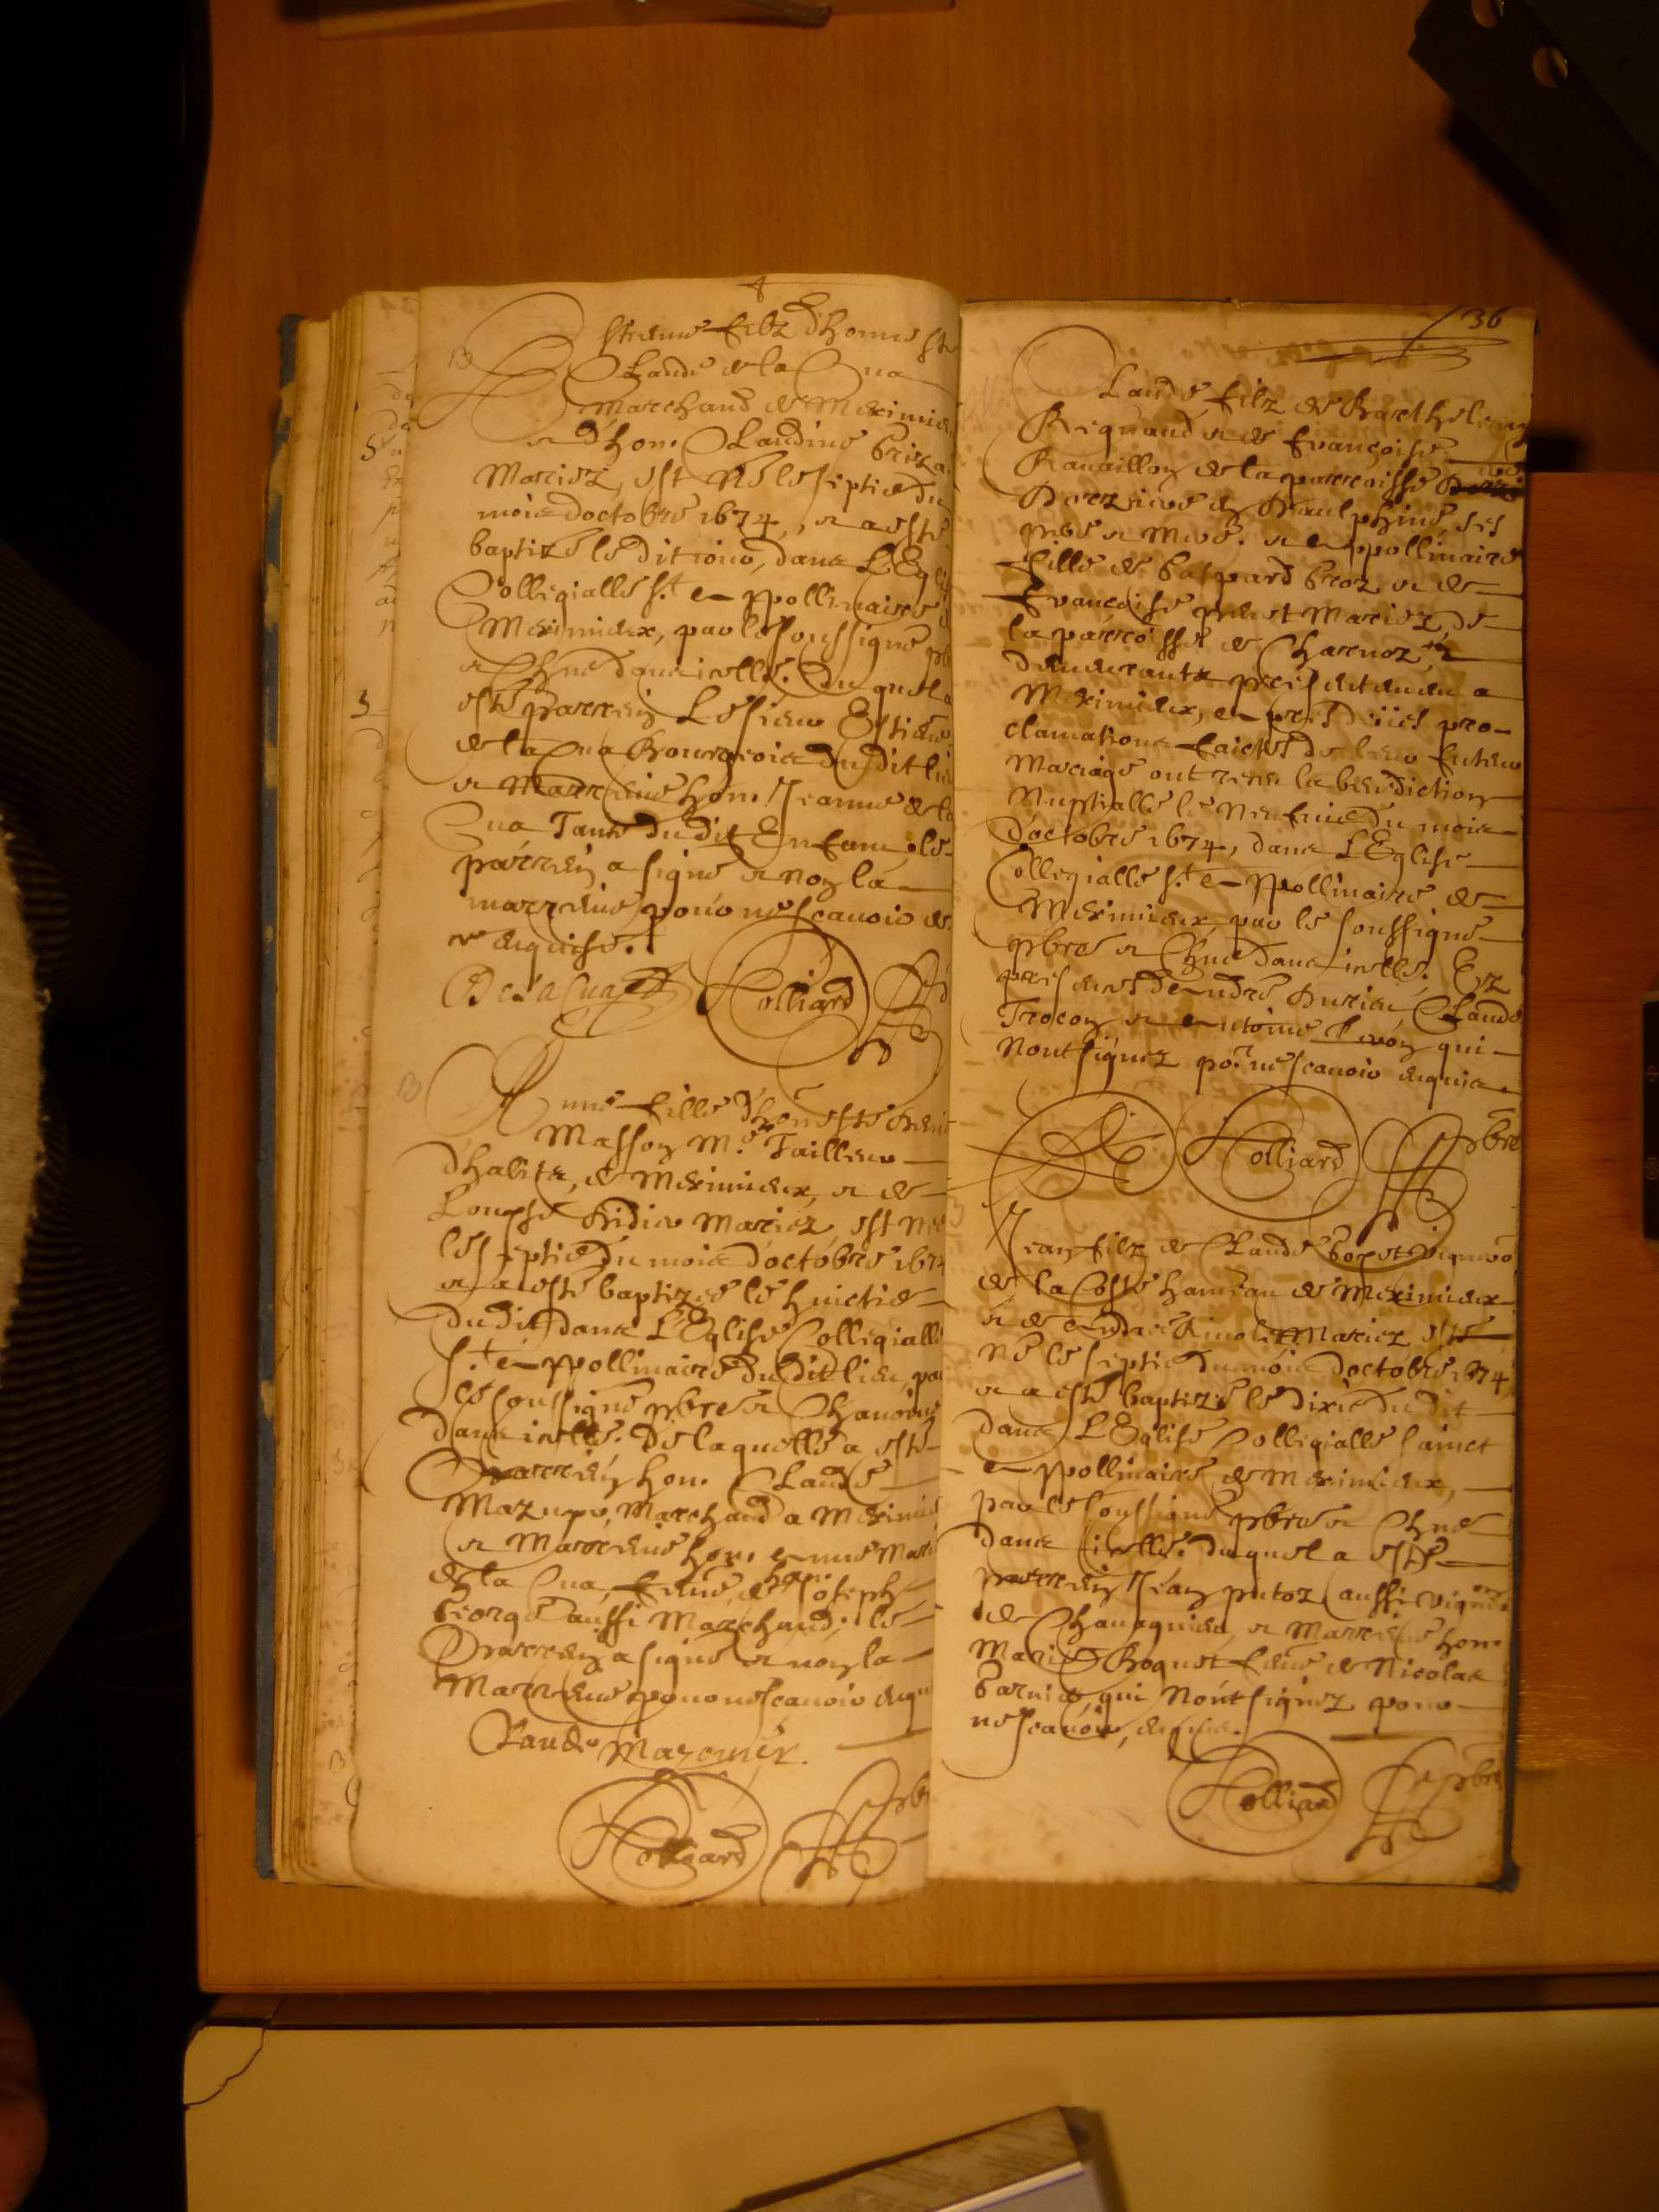 Estienne filz d'honneste
Claude de la Cua
marchand de Meximie
et d'hon. Claudine
Mariez, est né le septie du
mois doctobre 1674, et a esté
baptizé le dit jour, dans L'Eglise
Collegialle S.t Appollinaire
Meximieux, par le soussigné
et Chne dans icelle. Du quel a
esté parrein Le sieur Estienne
de la Cua Bourgeois du dit lieu
et Marreine hon. Jeanne de la
Cua Tante du dit Enfant, le
parrein a signé et non la
marreine pour ne scavoir de
ce enquise.
De La Cua Folliard
B
Anne fille d'honeste
Masson M.e Tailleur
dhabits, de Meximieux, et de
Louyse Didier Mariez, est née
le septie du mois doctobre 1674
et a esté baptizée le huictie
du dit dans L'Eglise Collegialle
S.t Appollinaire du dit lieu, par
le soussigné pbre et Chanoine
dans icelle. De laquelle a esté
Parrein hon. Claude
Mazuyer, Marchand a Meximie
et Marreine hon. Anne
de la Cua, feme de hon. Joseph
George aussi Marchand; le
Parrein a signé et non la
Marreine pour ne scavoir enqu
Claude Mazouier.
Folliard pbre
36
Claude filz de Barthelemy
Reynaud et de Françoise
Ravaillon de la parroisse
en Daulphiné, ses
pere et mere. et Appollinaire
fille de Gaspard Groz et de
Françoise Mariez, de
la parroisse de Charnoz
demeurants presentement a
Meximieux, Apres iiies pro-
clamations faictes de leur futeur
Mariage ont receu la benediction
Nuptialle le Neufuie du mois
doctobre 1674, dans L'Eglise
Collegialle S.t Appollinaire de
Meximieux par le soussigné
pbre et Chne dans icelle. Ez
presences d'Andre Durieu, Claude
Trocon et Antoine qui
Nont signez po.r ne scavoir enquis.
Folliard pbre
Jean filz de Claude vigneron
de la Coste hameau de Meximieux
et de Andree Mariez este
Né le septie du mois doctobre 1674
et a esté baptizé le dixie du dit
dans L'Eglise Collegialle Sainct
Appollinaire de Meximieux,
par le soussigné pbre et Chne
dans icelle. duquel a esté
parrein Jean putoz aussi vigneron
de et Marreine hon.
Marie Boquet feme de Nicolas
Garnier, qui Nont signez pour
ne scavoir, enquis.
Folliard pbre